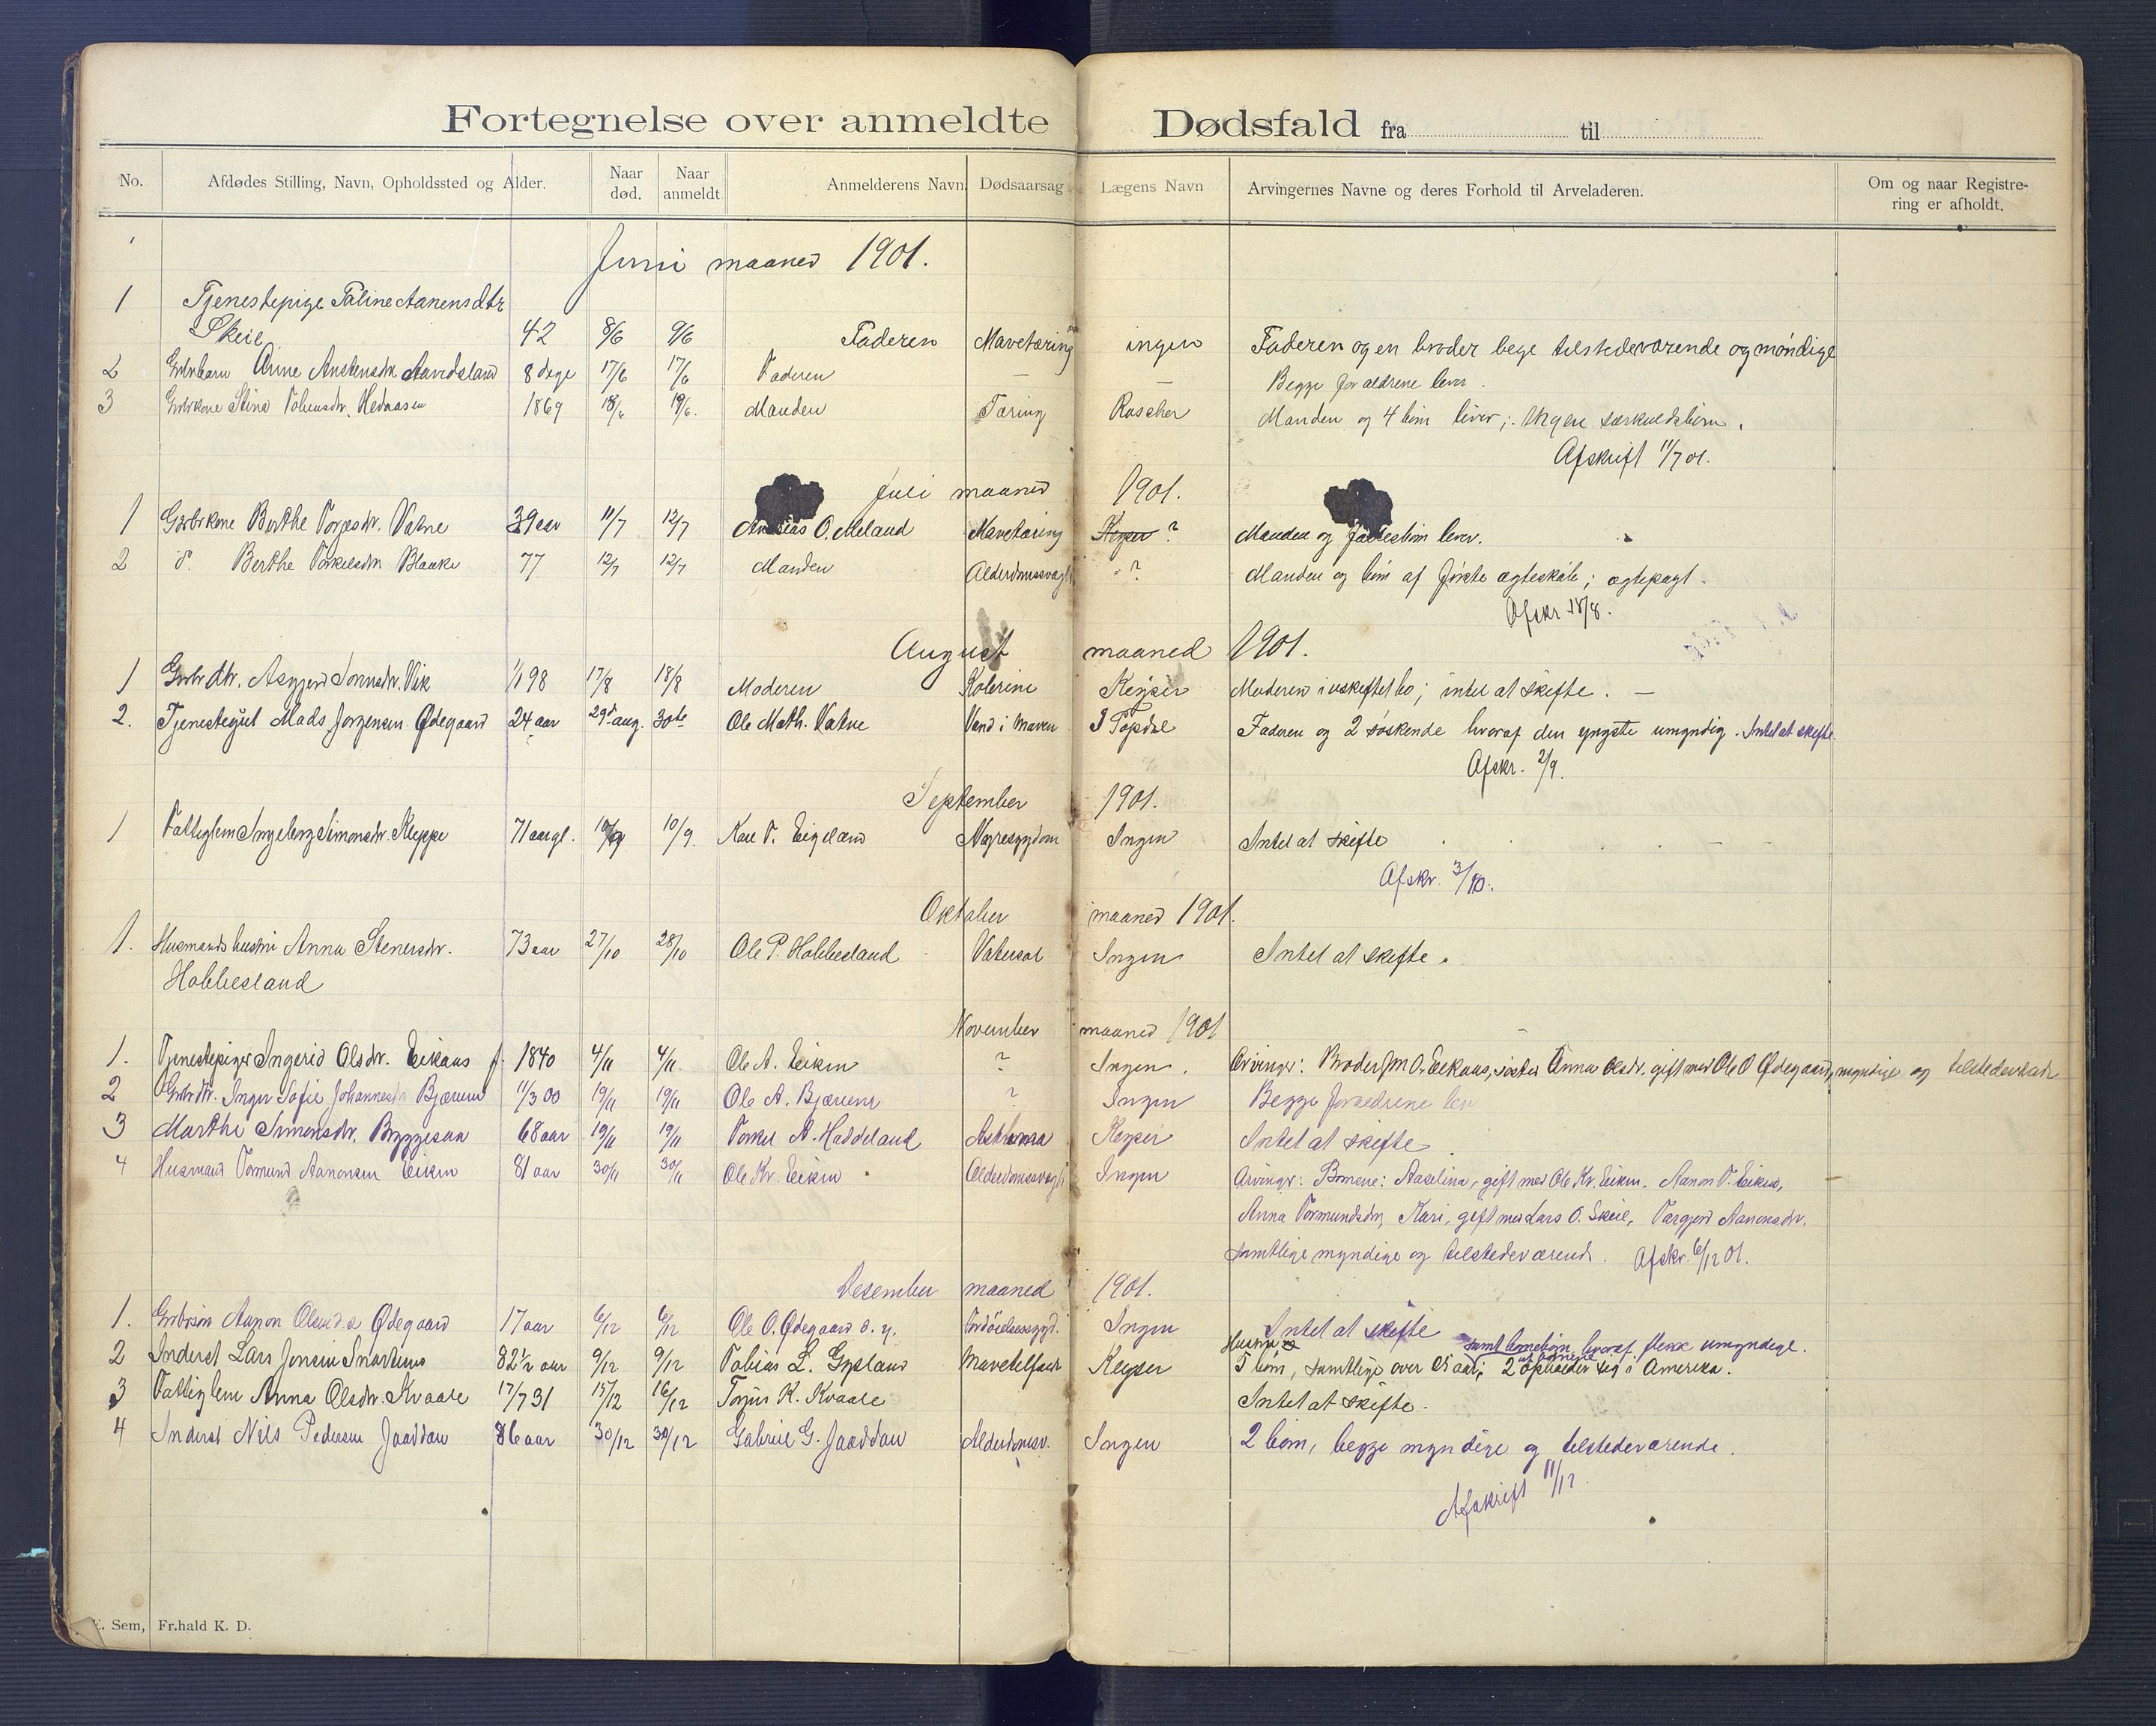 Fortegnelse over anmeldte Dødsfald fra til
No. Afdødes Stilling, Navn, Opholdssted og Alder. Naar død. Naar anmeldt. Anmelderens Navn. Dødsaarsag Lægens Navn Arvingernes Navne og deres Forhold til Arveladeren. Om og naar Registrering er afholdt.
Juni maaned 1901.
1 Tjenestepige Taline Aanensdtr
Skeie 42 8/6 9/6 Faderen Mavetæring ingen Faderen og en broder bege tilstedeværende og møndige
2 Grbrbarn Anne Anstensdtr 8 dage 17/6 17/6 Faderen — — Begge forældrene lever.
3 Grbrkone Stina 1869 18/6 19/6. Manden Tæring Roscher Manden og 4 børn lever; Ingen særkuldsbørn.
Afskrift 11/7 01.
Juli maaned 1901.
1 Gbrkone Berthe Torjesdr. Vatne 39 aar 11/7 12/7 O. Meland Mavetæring Keyser ? Manden og fællesbørn lever.
2 d. Berthe Torkelsdtr Blaake 77 12/7 12/7 Manden Alderdomssvagh ? Manden og børn af første ægteskab; ægtepagt.
Afskr 15/8.
August maaned 1901.
1 Grbrdtr. Asgjerd Tonnesdr. Vik 1/1 98 17/8 18/8 Moderen Kolerine Keyser Moderen i uskiftet bo; intet at skifte. —
2. Tjenestegut Mads Jørgensen Ødegaard 24 aar 29de aug. 30te Ole Math. Vatne Vand i maven J Topdal Faderen og 2 søskende hvoraf den yngste umyndig. Intet at skifte.
Afskr. 2/9.
September 1901.
1 Fattiglem Ingeborg Simonsdr. Kleppe 71 aar gl. 10/9 10/9. Karl T. Eigeland Nyresygdom Ingen Intet at skifte
Afskr. 3/10.
Oktober maaned 1901.
1. Husmandshustru Anna Stenersdr. 73 aar 27/10 28/10 Ole P. Hobbesland Vatersot Ingen Intet at skifte.
Hobbesland
November maaned 1901
1. Tjenestepige Ingerid Olsdr. Eikaas f. 1840 4/11 4/11 Ole A. Eiken ? Ingen. Arvinger: Broder O. Eekaas, søster Anna Olsdr. gift med Ole O Ødegaard, myndige og tilstedevær
2 Grbrdtr. Inger Sofie Johannesdr Bjærum 11/3 00 19/11 19/11 Ole A. Bjærum ? Ingen Begge forældrene lev
3 Marthe Simonsdr. Byggesaa 68 aar 19/11 19/11 Torkel A. Haddeland Asthma Keyser Intet at skifte.
4 Husmand Tormund Aanonsen Eiken 81 aar 30/11 30/11 Ole Kr. Eiken Alderdomssvagh Ingen Arvinger: Børnene: Aaselina, gift med Ole Kr. Eiken. Aanon T. Eiken,
Anna Tormundsdr, Kari, gift med Lars O. Skeie, Targjerd Aanonsdr.
samtlige myndige og tilstedeværend. Afskr. 6/12 01.
Desember maaned 1901.
1. Grbrsøn Aanon Olsen Ødegaard 17 aar 6/12 6/12 Ole O. Ødegaard d. y. Ingen Intet at skifte
Hustru samt børnebørn, hvoraf flere umyndige.
2 Inderst Lars Jensen 82 1/2 aar 9/12 9/12 Tobias L. Gysland Keyser 5 børn, samtlige over 25 aar; 2 af børnene opholder sig i Amerika.
3 Fattiglem Anna Olsdr. Kvaale 17/7 31 15/12 16/12 Torjus K. Kvaale Intet at skifte.
4 Inderst Nils Pedersen Jaaddan 86 aar 30/12 30/12 Gabriel G. Jaaddan Alderdomsv. Ingen 2 børn, begge myndige og tilstedeværende.
Afskrift 11/12.
E. Sem, Fr.hald K. D.